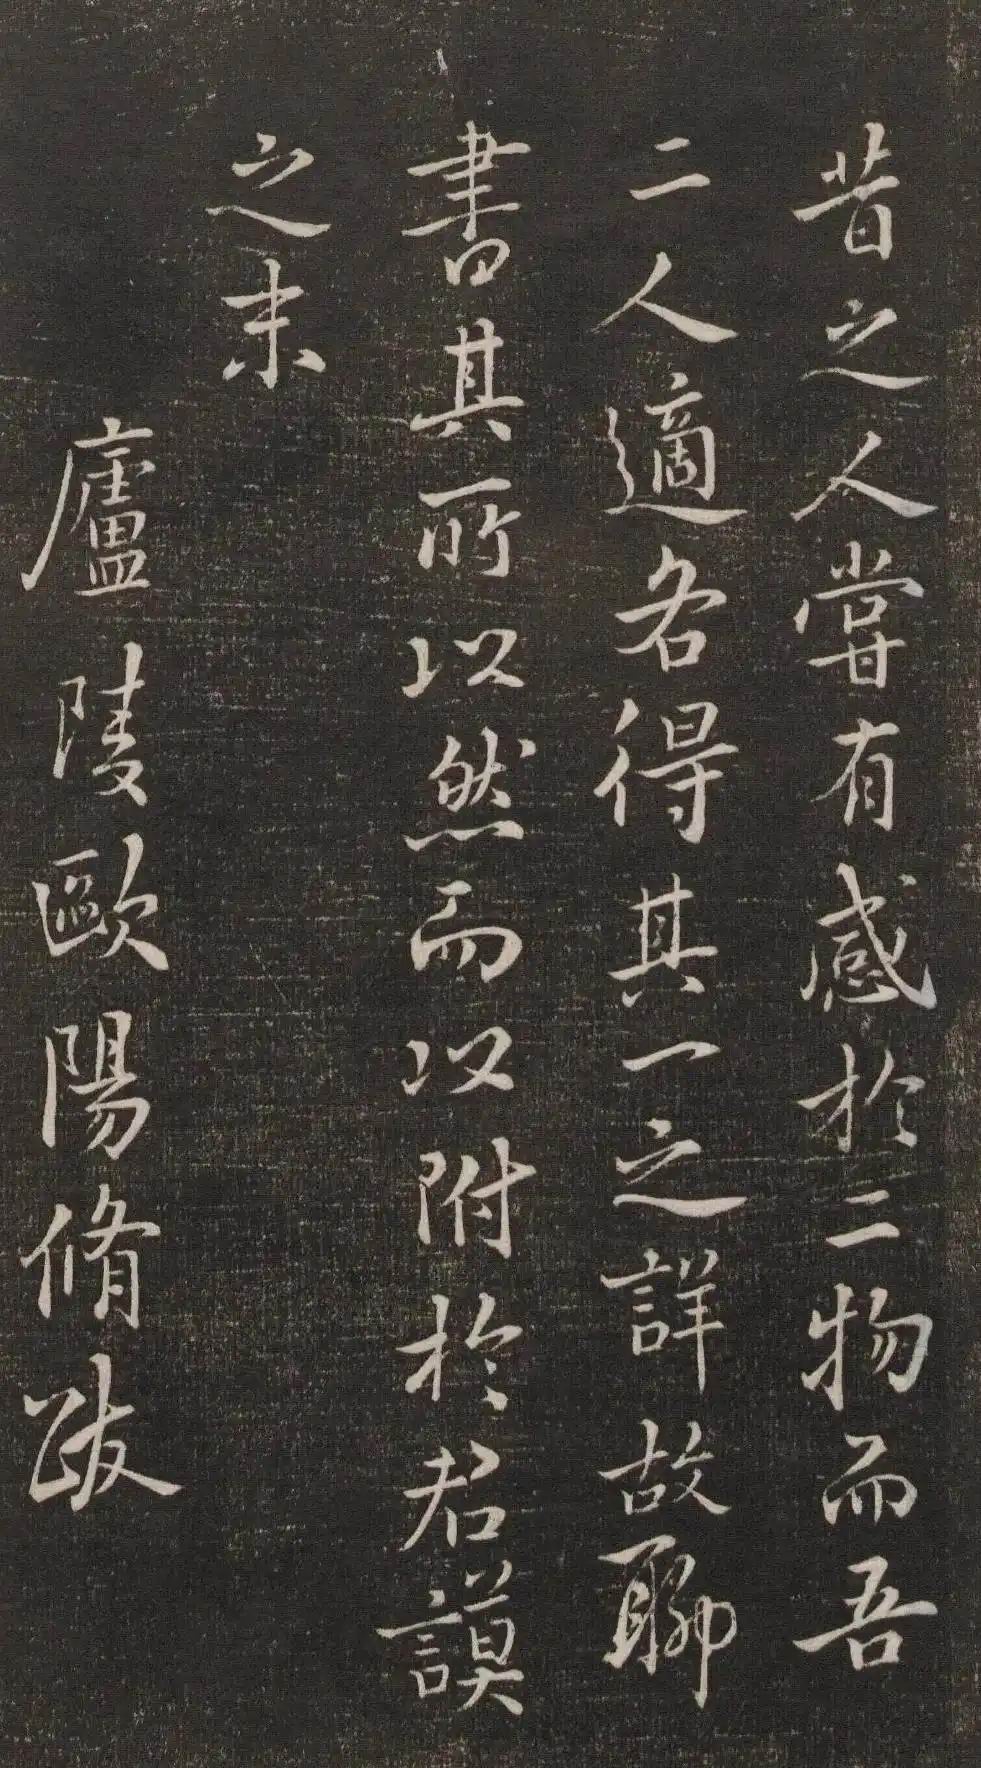 昔之人嘗有感於二物而吾
二人適各得其一之詳故聊
書其所以然而以附於君謨
之末
廬陵歐陽脩跋